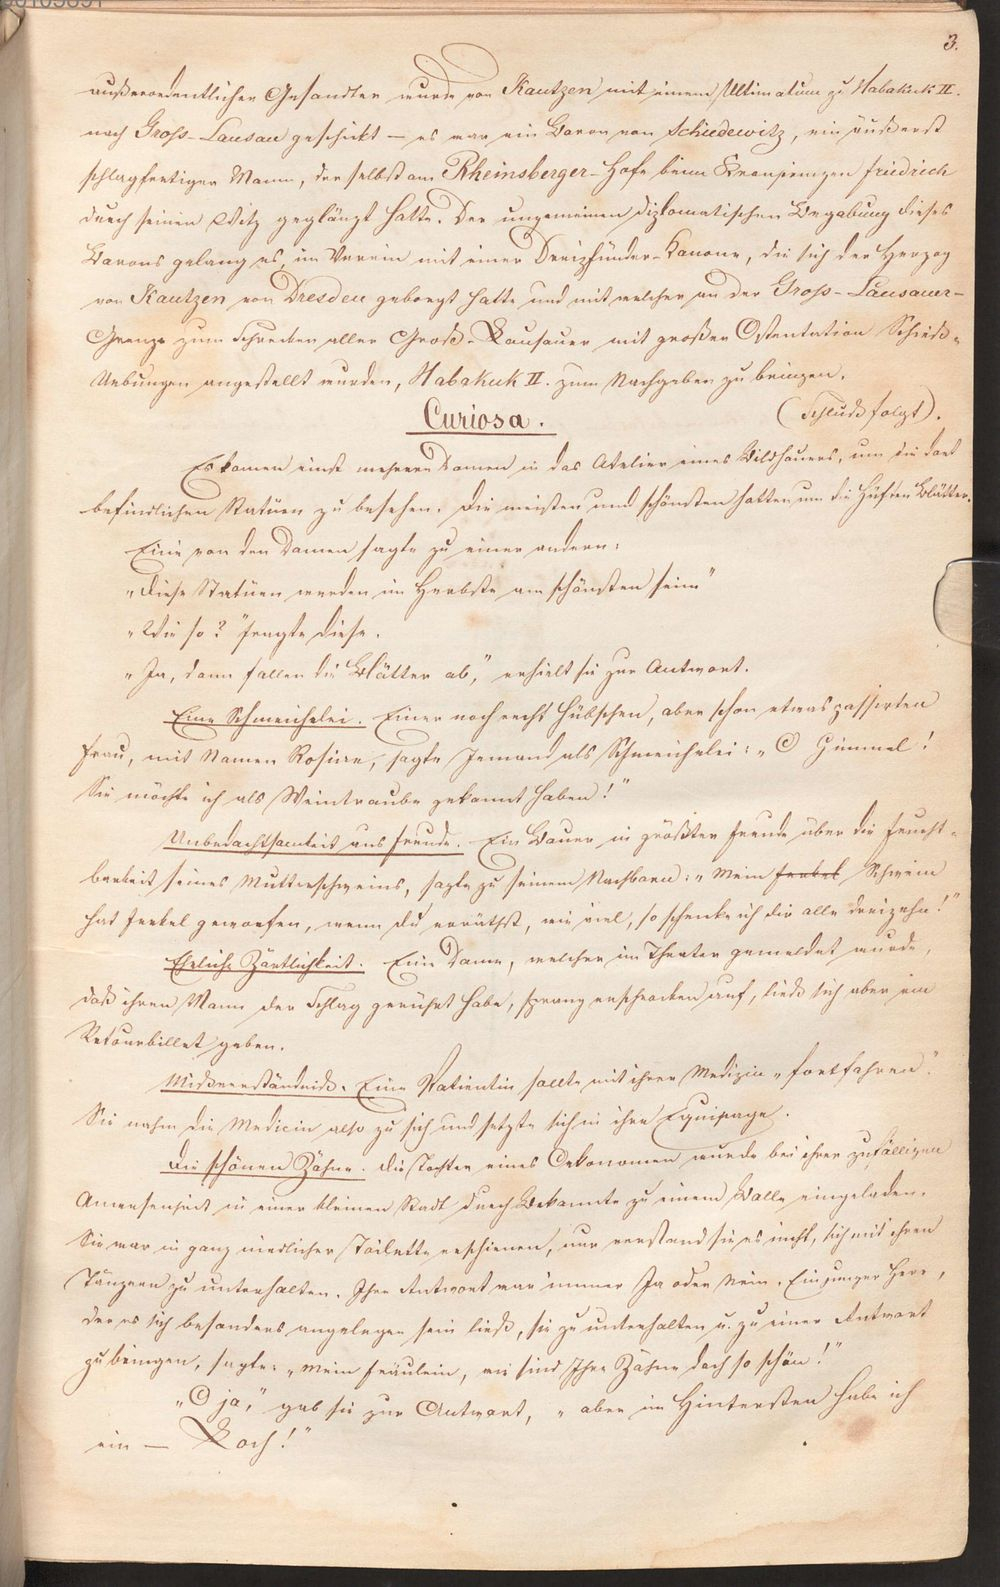 3.
außerordentlicher Gesandter wurde von Kautzen mit einem Ultimatum zu Habakuk II.
nach Groß-Lausau geschickt — es war ein Baron von Schiedewitz, ein äußerst
schlagfertiger Mann, der selbst am Rheinsberger-Hofe beim Kronprinzen Friedrich
durch seinen Witz geglänzt hatte. Der ungemeinen diplomatischen Begabung dieses
Barons gelang es, im Verein mit einer Dreipfünder-Kanone, die sich der Herzog
von Kautzen von Dresden geborgt hatte und mit welcher an der Gross-Lausauer-
Grenze zum Schrecken aller Groß-Lausauer mit großer Ostentation Schieß-
Uebungen angestellt wurden, Habakuk II. zum Nachgeben zu bringen.
(Schluß folgt).
Curiosa.
Es kamen einst mehrere Damen in das Atelier eines Bildhauers, um die dort
befindlichen Statüen zu besehen. Die meisten und schönsten hatten um die Hüften Blätter.
Eine von den Damen sagte zu einer andern:
„Diese Statüen werden im Herbste am schönsten sein"
„Wie so?" fragte diese.
„Ja, dann fallen die Blätter ab," erhielt sie zur Antwort.
Eine Schmeichelei. Einer noch recht hübschen, aber schon etwas passirten
Frau, mit Namen Rosine, sagte Jemand als Schmeichelei: „O Himmel!
Sie möchte ich als Weintraube gekannt haben!"
Unbedachtsamkeit aus Freude. Ein Bauer in größter Freude über die Frucht-
barkeit seines Mutterschweins, sagte zu seinem Nachbarn: „Mein Ferkel Schwein
hat Ferkel geworfen, wenn du erräthst, wie viel, so schenke ich dir alle dreizehn!"
Eheliche Zärtlichkeit. Eine Dame, welcher im Theater gemeldet wurde,
daß ihren Mann der Schlag gerührt habe, sprang erschrocken auf, ließ sich aber ein
Retourbillet geben.
Mißverständniß. Eine Patientin sollte mit ihrer Medizin „fortfahren".
Sie nahm die Medicin also zu sich und setzte sich in ihre Equipage.
Die schönen Zähne. Die Tochter eines Oekonomen wurde bei ihrer zufälligen
Anwesenheit in einer kleinen Stadt durch Bekannte zu einem Balle eingeladen.
Sie war in ganz niedlicher Toilette erschienen, nur verstand sie es nicht, sich mit ihren
Tänzern zu unterhalten. Ihre Antwort war immer Ja oder Nein. Ein junger Herr,
der es sich besonders angelegen sein ließ, sie zu unterhalten u. zu einer Antwort
zu bringen, sagte: „Mein Fräulein, wie sind Ihre Zähne doch so schön!"
„O ja," gab sie zur Antwort, „aber im Hintersten habe ich
ein — Loch!"